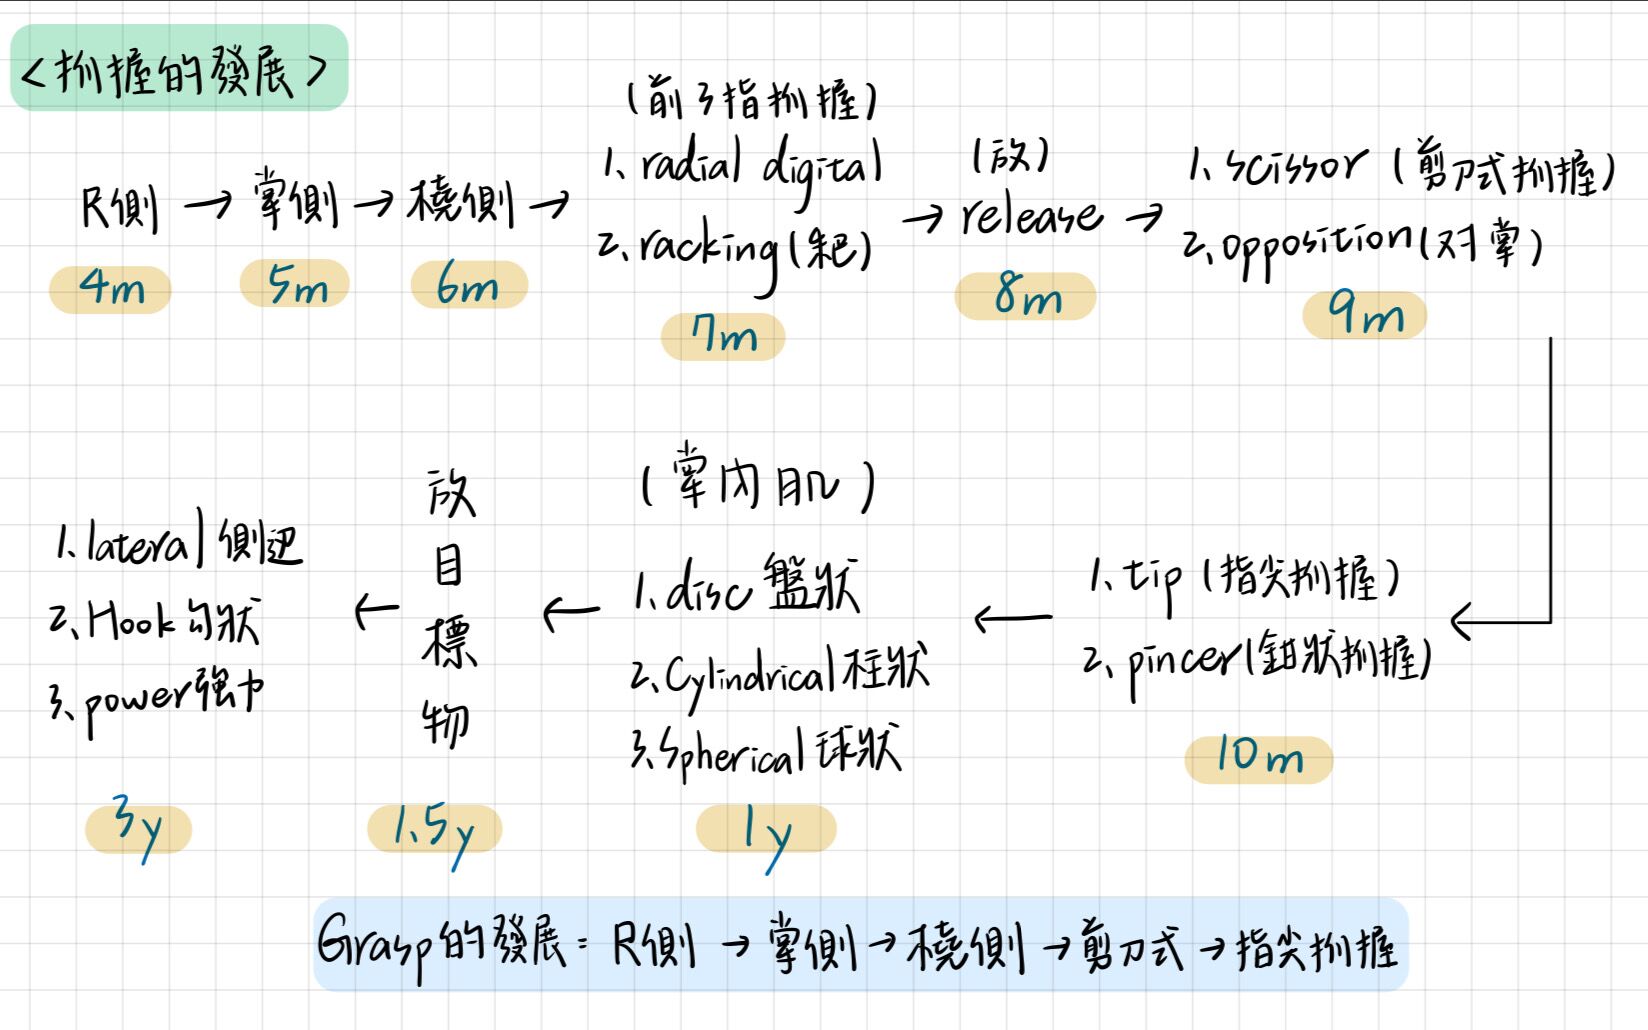 <抓握的發展>
R側 → 掌側 → 橈側 →
4m
5m
6m
(前3指抓握)
1. radial digital
2. racking(耙)
7m
→
(放)
release
8m
→
1. scissor (剪刀式抓握)
2. opposition(对掌)
9m
1. tip (指尖抓握)
2. pincer(鉗狀抓握)
10m
←
(掌內肌)
1. disc 盤狀
2. Cylindrical 柱狀
3. Spherical 球狀
1y
←
放
目
標
物
1.5y
←
1. lateral 側邊
2. Hook 勾狀
3. power 強力
3y
Grasp的發展: R側 → 掌側 → 橈側 → 剪刀式 → 指尖抓握